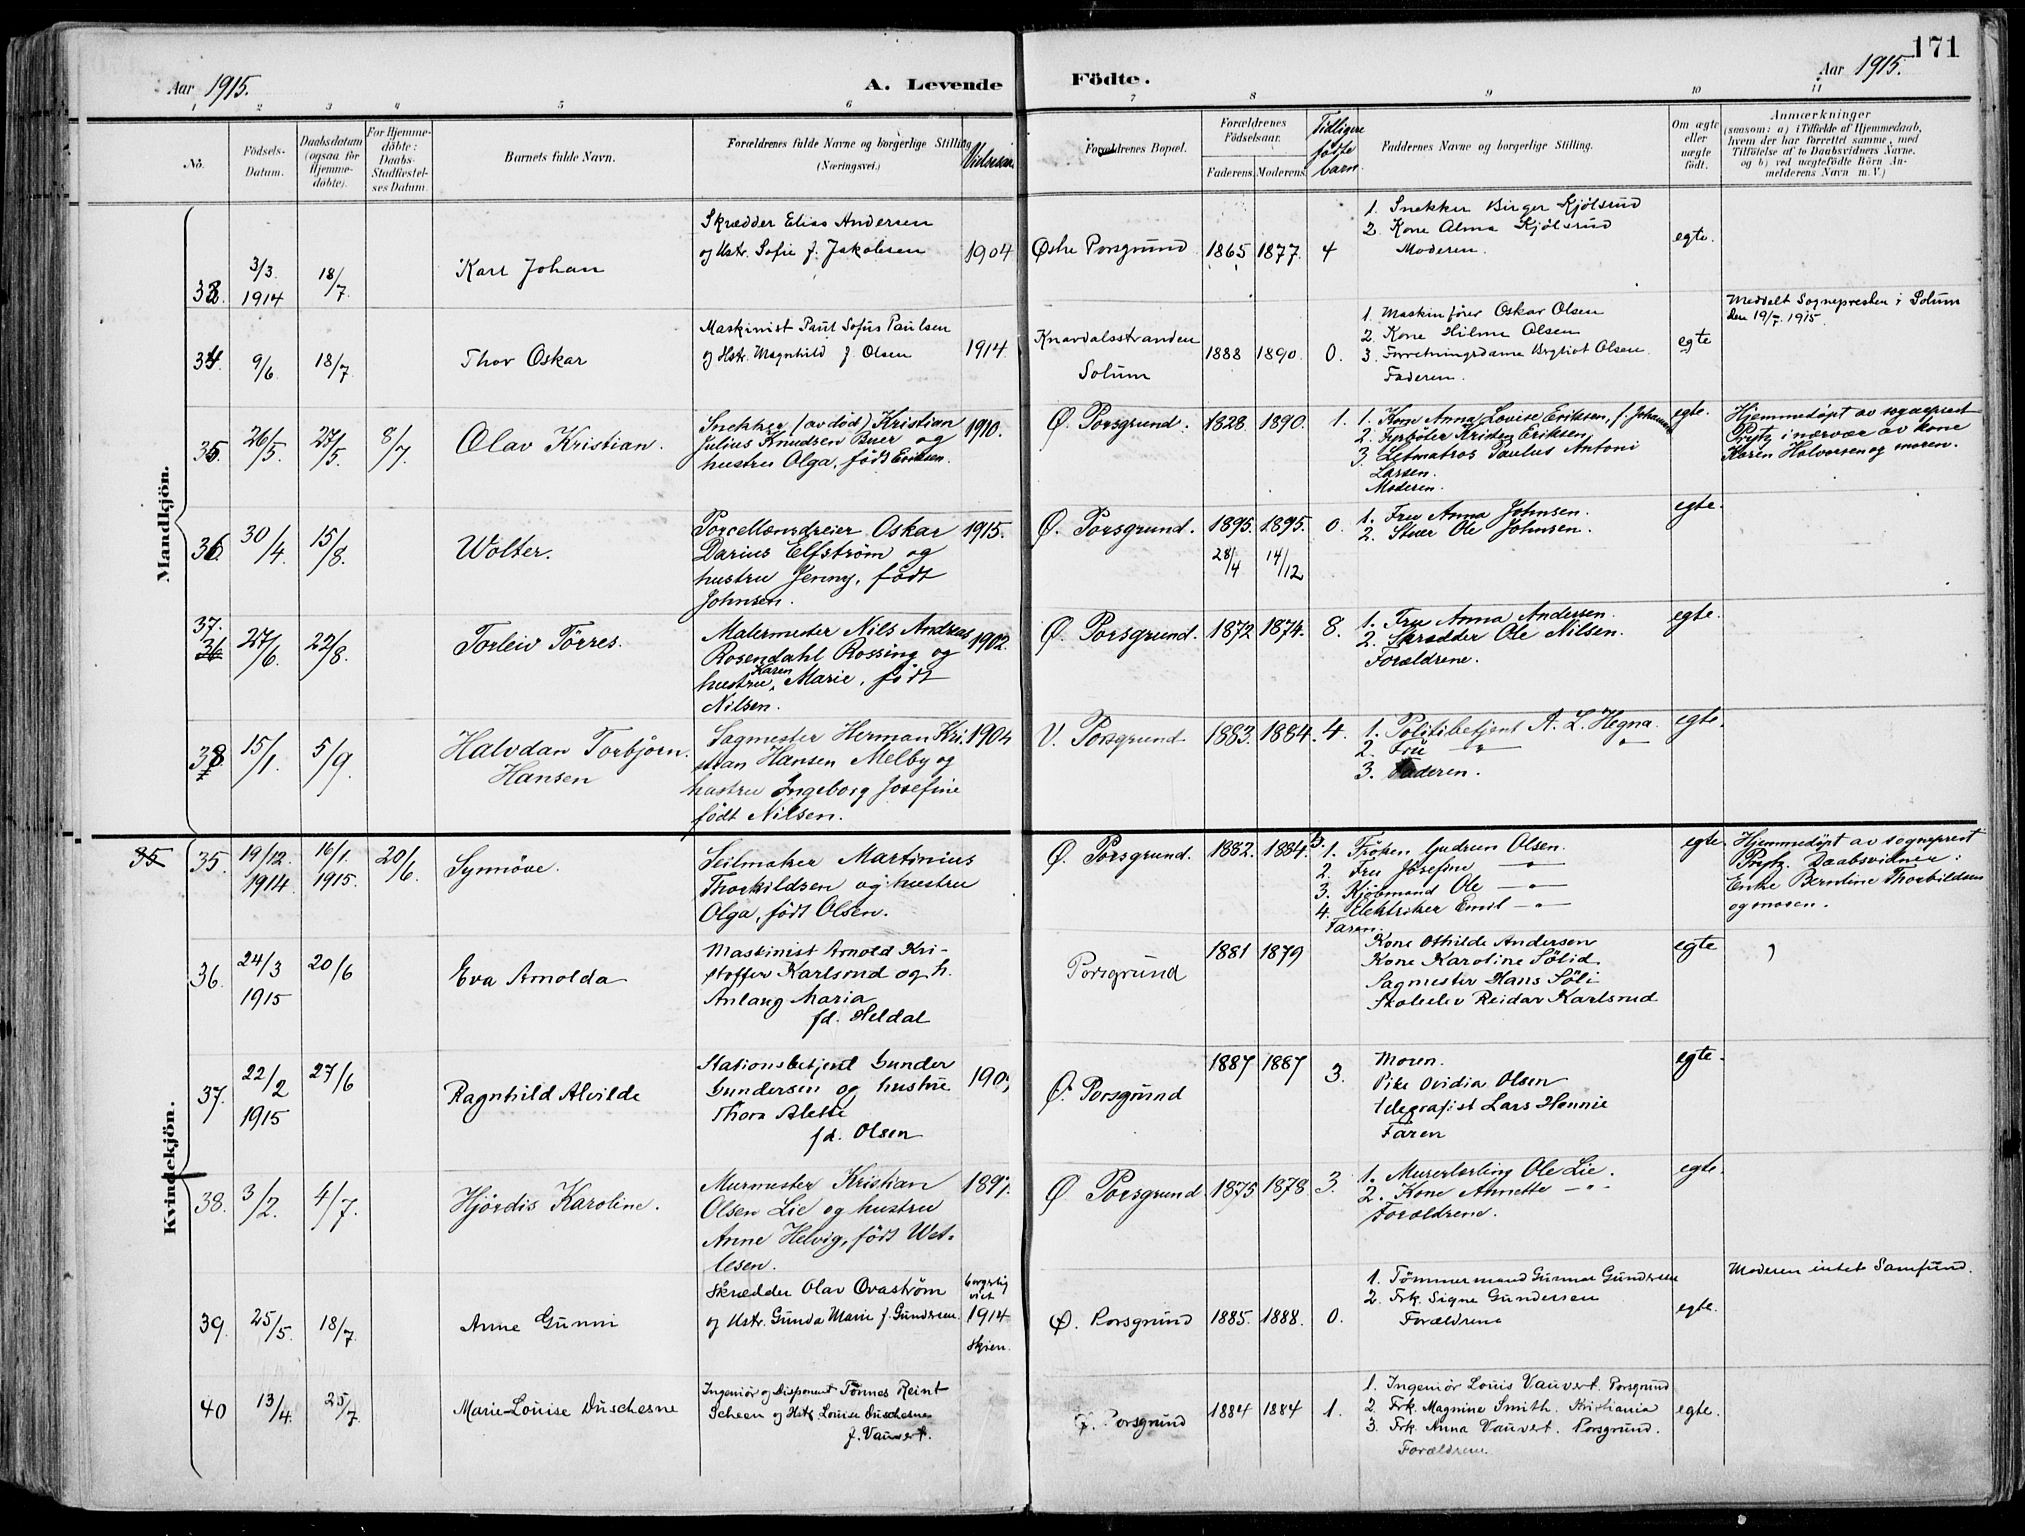 171
Aar 1915.
A. Levende Födte.
Aar 1915.
1 2 3 4 5 6 7 8 9 10 11
No.
Födsels-Datum.
Daabsdatum (ogsaa for Hjemmedöbte).
For Hjemmedöbte: Daabs-Stadfæstelses Datum.
Barnets fulde Navn.
Forældrenes fulde Navne og borgerlige Stilling (Næringsvei.)
Forældrenes Bopæl.
Forældrenes Födselsaar.
Faderens. Moderens.
Tidligere fødte barn.
Faddernes Navne og borgerlige Stilling.
Om ægte eller uægte födt.
Anmærkninger
(saasom: a) i Tilfælde af Hjemmedaab, hvem der har forrettet samme, med Tilföielse af to Daabsvidners Navne. og b) ved uægtefödte Börn Anmelderens Navn m. V.)
Mandkjön.
3/3 1914 18/7
Karl Johan
Skrædder Elias Andersen
og Hstr. Sofie f. Jakobsen
1904
Østre Porsgrund
1865 1877. 4
1. Snekker Birger Kjølsrud
2. Kone Alma Kjølsrud
Moderen.
egte.
34. 9/6 18/7
Thor Oskar
Maskinist Paul Sofus Paulsen
og Hstr. Magnhild f. Olsen
1914.
Knardalsstranden
Solum
1888 1890. 0.
1. Maskinfører Oskar Olsen
2. Kone Hilma Olsen
3. Forretningsdame Bergliot Olsen
Faderen.
egte
Meddelt Sognepresten i Solum
den 19/7 1915.
35. 26/5. 27/5. 8/7
Olav Kristian.
Snekker (avdöd) Kristian
Julius Knudsen Buer og
hustru Olga, født Eriksen.
1910.
Ø. Porsgrund.
1828 1890. 1.
1. Kone Anna Lovise Eriksen, f. Johannes
2. Fyrböter Kristen Eriksen
3. Letmatros Paulus Antoni
Larsen.
Moderen.
egte.
Hjemmedøpt av sogneprest
Prytz i nærvær av kone
Karen Halvorsen og moren.
36. 30/4. 15/8.
Wolter.
Porcellænsdreier Oskar
Darius Elfstrøm og
hustru Jenny, født
Johnsen.
1915.
Ø. Porsgrund.
1895. 1895. 0.
28/4 14/12
1. Fru Anna Johnsen.
2. Stuer Ole Johnsen.
egte.
37.
36 27/6. 22/8.
Torleiv Tørres.
Malermester Nils Andreas
Rosendahl Rossing og
hustru Karen Marie, født
Nilsen.
1902.
Ø. Porsgrund.
1872 1874. 8.
1. Fru Anna Andersen.
2. Skrædder Ole Nilsen.
Forældrene.
egte.
38 15/1. 5/9.
Halvdan Torbjørn
Hansen
Sagmester Herman Kri-
stian Hansen Melby og
hustru Ingeborg Josefine
født Nilsen.
1904
V. Porsgrund.
1883. 1884. 4.
1. Politibetjent A. L. Hegna.
2. Fru — " — "
3. Faderen.
egte.
Kvindekjön.
35 35. 19/12. 1914. 16/1 1915. 20/6.
Synnöve.
Seilmaker Martinius
Thorkildsen og hustru
Olga, født Olsen.
Ø. Porsgrund.
1882. 1884.
1. Frøken Gudrun Olsen.
2. Fru Josefine — " —
3. Kjøbmand Ole — " —
4. Elektriker Emil — " —
Faren.
egte.
Hjemmedøpt av sogneprest
Prytz. Daabsvidner:
Enke Berntine Thorkildsen
og moren.
36. 24/3 1915 20/6
Eva Arnolda
Maskinist Arnold Kri-
stoffer Karlsrud og h.
Anlaug Maria
fd. Heldal
Porsgrund
1881 1879
Kone Othilde Andersen
Kone Karoline Sölid.
Sagmester Hans Söli
Skoleelev Reidar Karlsrud
egte
37. 22/2 1915 27/6
Ragnhild Alvilde
Stationsbetjent Gunder
Gundersen og hustru
Thora Alette
fd. Olsen
Ø. Porsgrund
1887 1887 3.
Moren.
Pike Ovidia Olsen
telegrafist Lars Honnie
Faren
egte.
38. 3/2. 4/7.
Hjördis Karoline.
Murmester Kristian
Olsen Lie og hustru
Anne Helvig, født Wet-
lesen.
1897.
Ø Porsgrund
1875 1878 3.
1. Murerlærling Ole Lie.
2. Kone Annette — " —
Forældrene.
egte.
39. 25/5. 18/7.
Anne Gunni
Skrædder Olav Ovaström
og Hstr. Gunda Marie f. Gundersen
borgerlig viet
1914
Skien.
Ø. Porsgrund
1885. 1888. 0.
1. Tömmermand Gunnar Gundersen
2. Frk. Signe Gundersen
Forældrene
egte.
Moderen intet Samfund.
40 13/4. 25/7.
Marie-Louise Duschesne
Ingeniör og Disponent Tönnes Reint
Scheen og Hstr. Louise Duschesne
f. Vauvert.
Ø. Porsgrund
1884 1884 1.
1. Ingeniør Louis Vauvert. Porsgrund
2. Frk. Magnine Smith. Kristiania
3. Frk. Anna Vauvert. Porsgrund.
Forældrene.
egte.